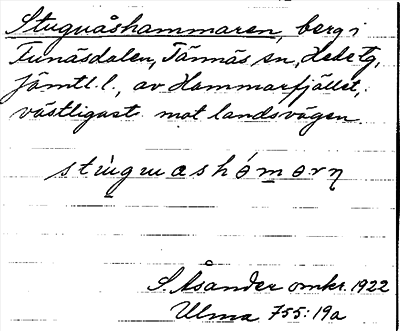 Stuguåshammaren, berg i
Funäsdalen, Tännäs sn, Hede tg,
Jämtl. l., av Hammarfjället,
västligast mot landsvägen.
stúguashámarn̥
S. Åsander omkr. 1922
Ulma 755:19a